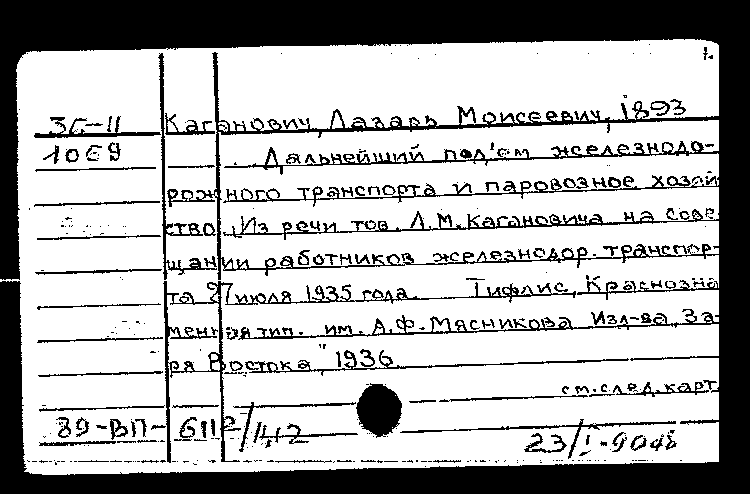 1.
3Г-11 Каганович, Лазарь Моисеевич, 1893
1069 Дальнейший под'ем железнодо-
рожного транспорта и паровозное хозяй
ство. Из речи тов. Л.М. Кагановича на сове-
щании работников железнодор. транспор-
та 27 июля 1935 года. Тифлис, Краснозна
менная тип. им. А.Ф. Мясникова Изд-ва „За-
ря Востока", 1936
см. след. карт.
89-ВП- 6112/1412
23/I-